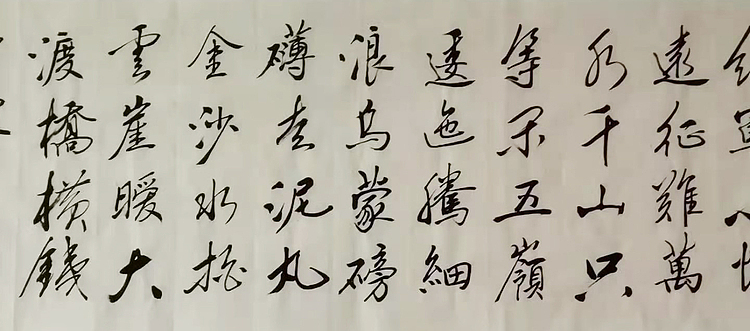 遠征難萬
水千山只
等閑五嶺
逶迤騰細
浪烏蒙磅
礴走泥丸
金沙水拍
雲崖暖大
渡橋橫鐵